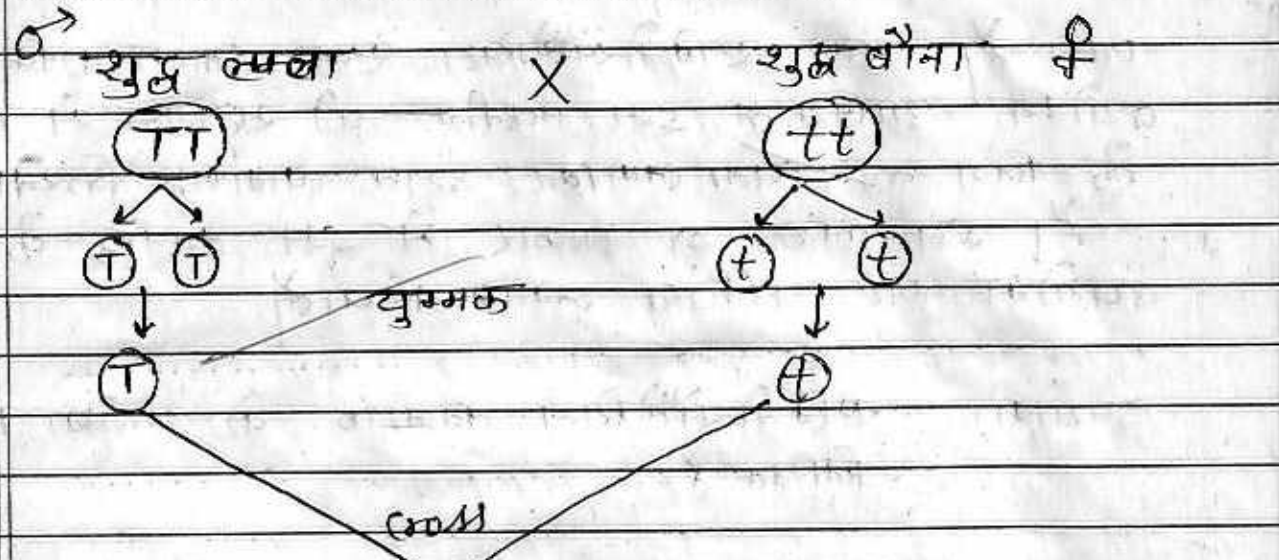 ♂ शुद्ध लम्बा X शुद्ध बौना ♀
TT tt
T T t t
युग्मक
T t
cross